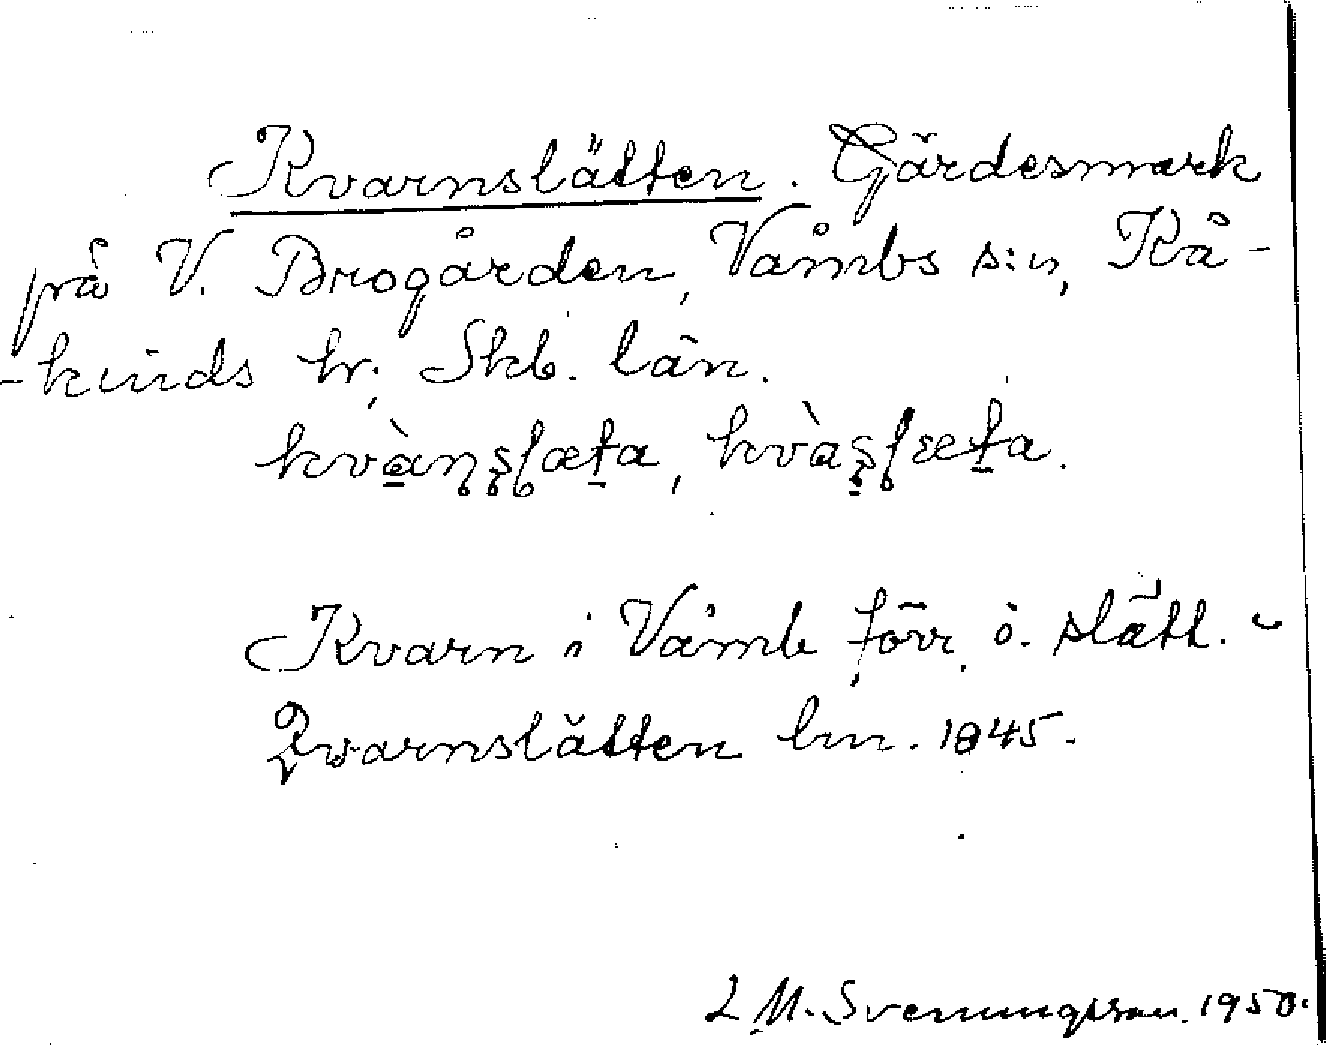 Kvarnslätten. Gärdesmark
på V. Brogården, Våmbs s:n, Kå-
-kinds hr, Skb. län.
kvàṇṣḷæta, kvàṣḷæta.
Kvarn i Våmb förr ö. slätt. -
Qvarnslätten lm. 1845.
L M. Svenungsson. 1950.